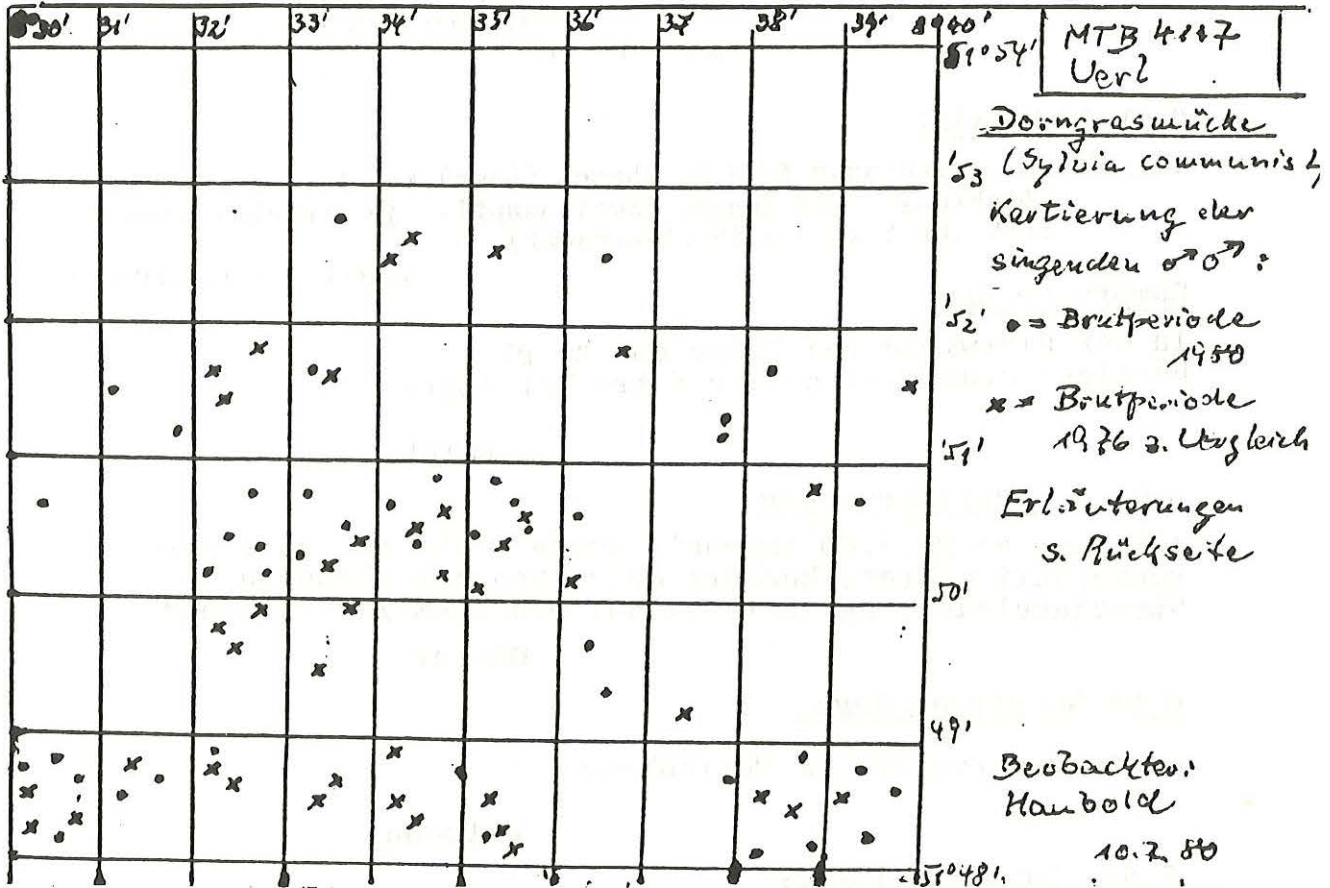 30' 31' 32' 33' 34' 35' 36' 37 38' 39' 8°40'
51°54'
MTB 4117
Verl
Dorngrasmücke
'53 (Sylvia communis L,
Kartierung der
singenden ♂♂:
'52' • = Brutperiode
1980
x = Brutperiode
1976 z. Vergleich
'51'
Erläuterungen
s. Rückseite
50'
49'
Beobachter:
Haubold
10.7.80
51°48'